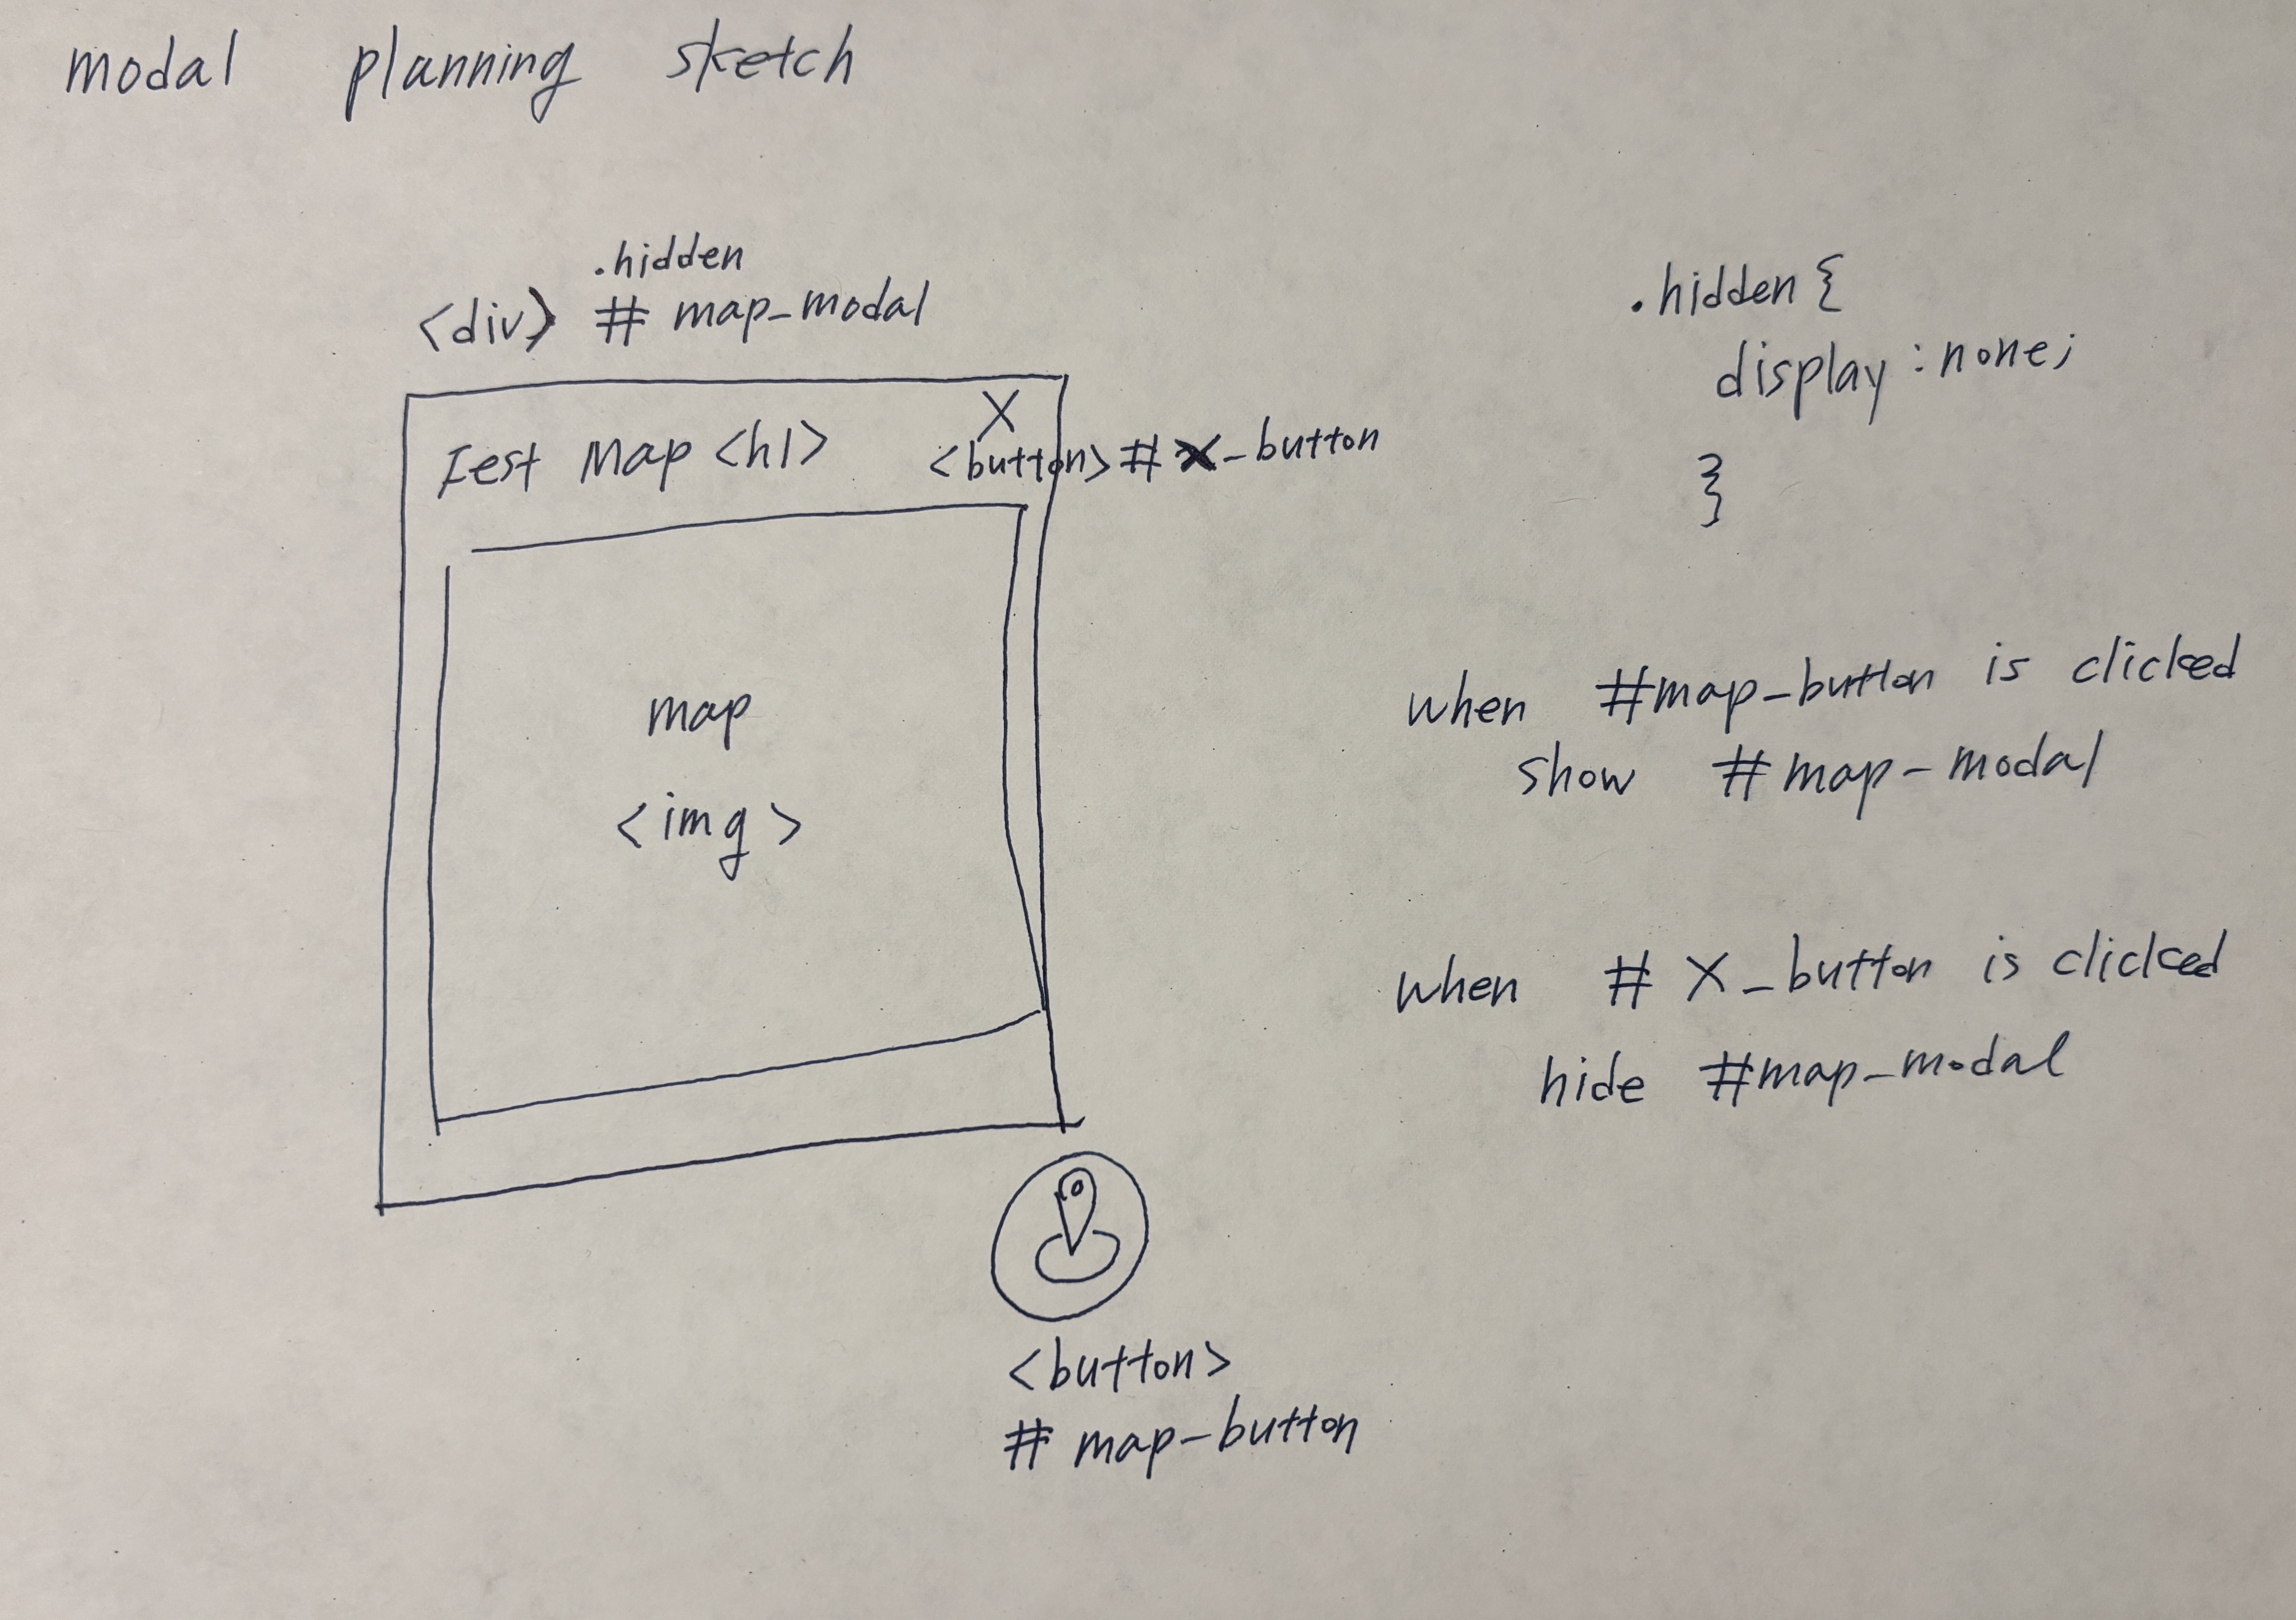 modal planning sketch
.hidden
<div> # map_modal
X
Fest Map <h1>
<button> # X_button
map
<img>
<button>
# map-button
.hidden {
display : none;
}
when #map_button is clicked
show #map-modal
when # X_button is clicked
hide #map_modal